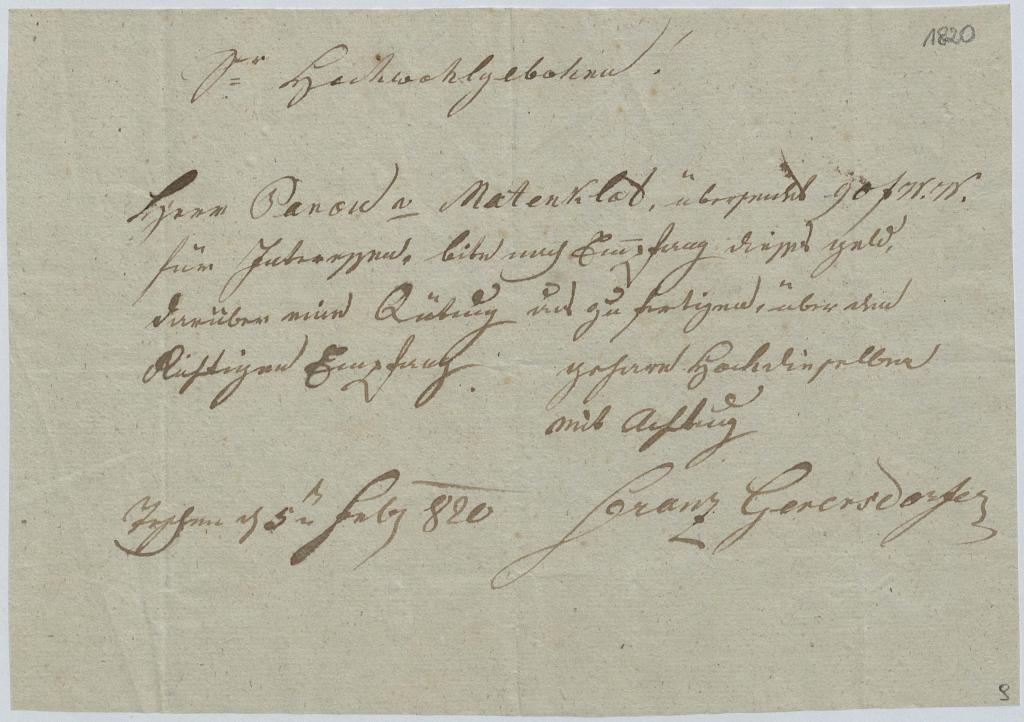 1820
Sr Hochwohlgebohrn!
Herr Baron v Matenklot, übersende 90 f W. W.
für Interessen, bite nach Empfang dieses geld,
darüber eine Quitung aus zu fertigen, über den
Richtigen Empfang.
geharre Hochdieselben
mit Achtung
Teschen 5 Feby 820
Franz Gerersdorfer